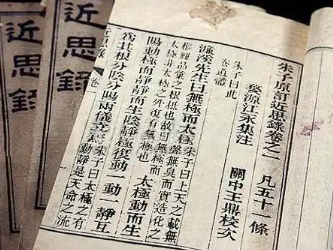 朱子原訂近思錄卷之一 凡五十一條
婺源江永集注 關中王鼎校次
朱子曰此
卷道體
濂溪先生曰無極而太極
朱子曰上天之載無
聲無臭而實造化之
樞紐品彙之根柢也故曰無極而
太極非太極之外復有無極也
太極動而生
陽動極而靜靜而生陰靜極復動一動一靜互
爲其根分陰分陽兩儀立焉
朱子曰太極之有
動靜是天命之流
近思錄
近思錄
近思錄